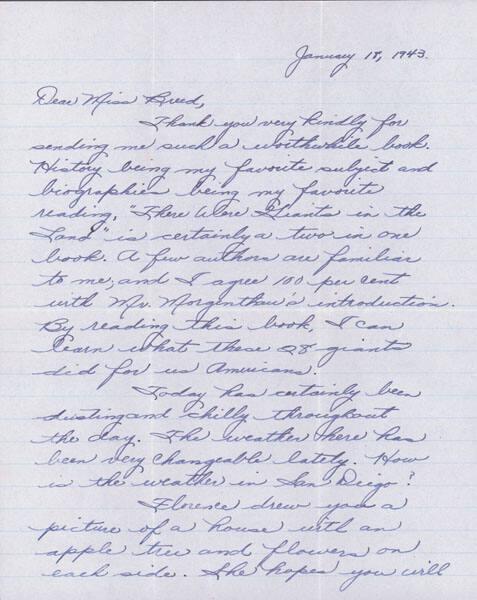 January 18, 1943.
Dear Miss Breed,
Thank you very kindly for
sending me such a worthwhile book.
History being my favorite subject and
biographies being my favorite
reading, "There Were Giants in the
Land" is certainly a two in one
book. A few authors are familiar
to me, and I agree 100 per cent
with Mr. Morgenthau's introduction.
By reading this book, I can
learn what these 28 giants
did for us Americans.
Today has certainly been
dusting and chilly throughout
the day. The weather here has
been very changeable lately. How
is the weather in San Diego?
Florence drew you a
picture of a house with an
apple tree and flowers on
each side. She hopes you will